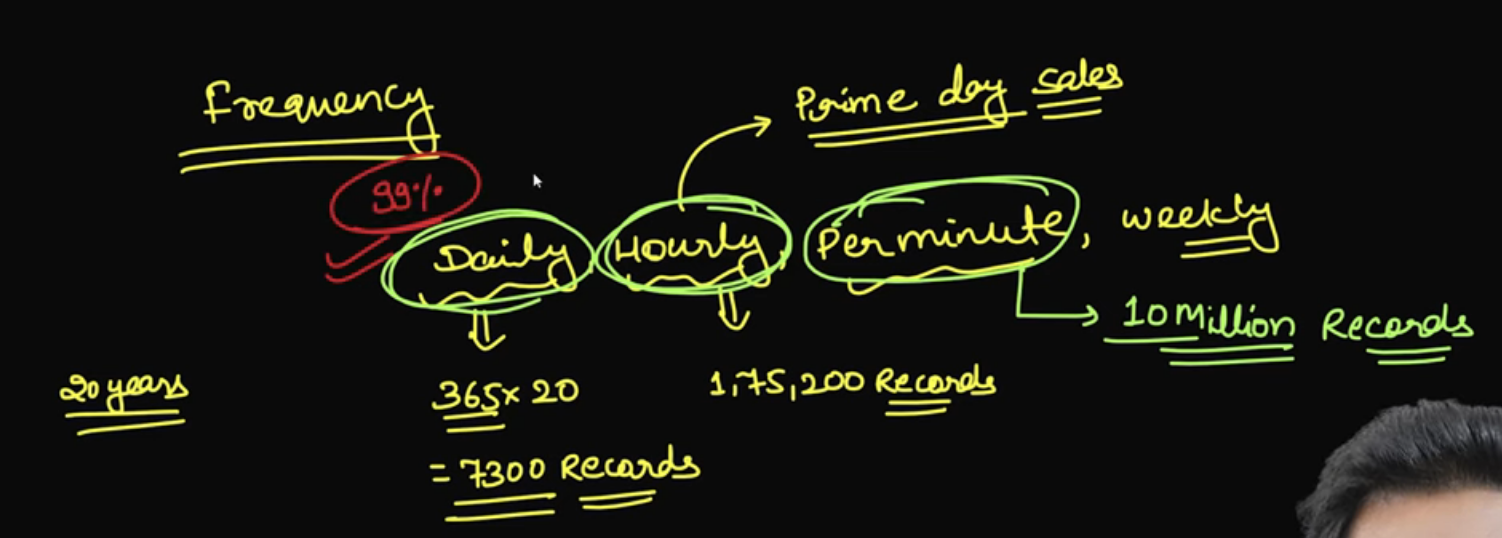 Frequency
Prime day sales
99%
Daily Hourly Per minute, weekly
10 Million Records
20 years
365 x 20
1,75,200 Records
= 7300 Records